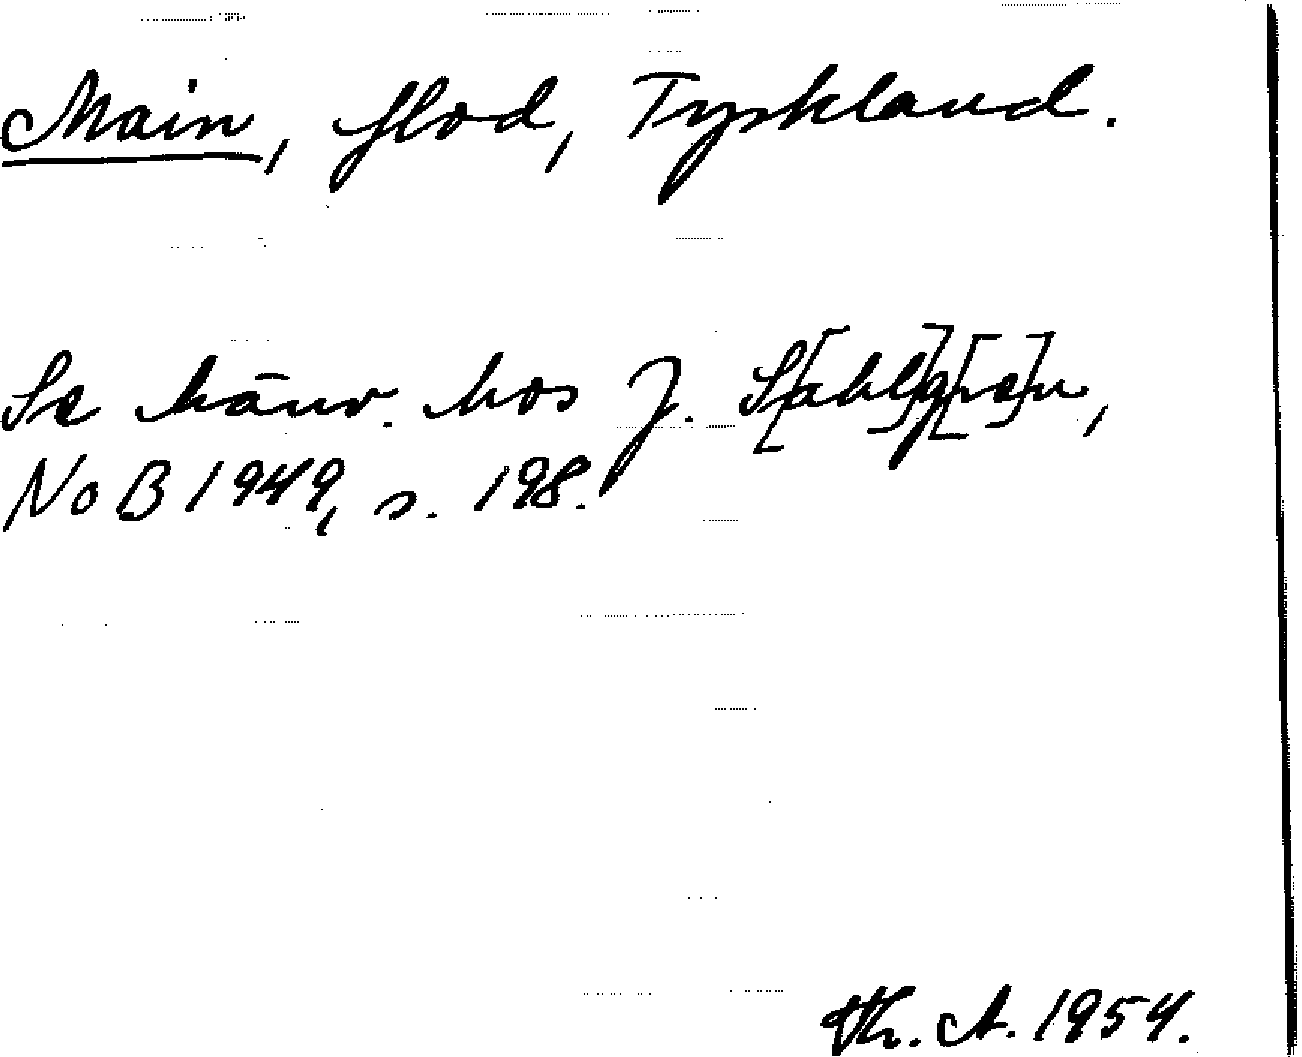 Main, flod, Tyskland.
Se hänv. hos J. S[ahl]g[re]n,
NoB 1949, s. 198.
Th. A. 1954.